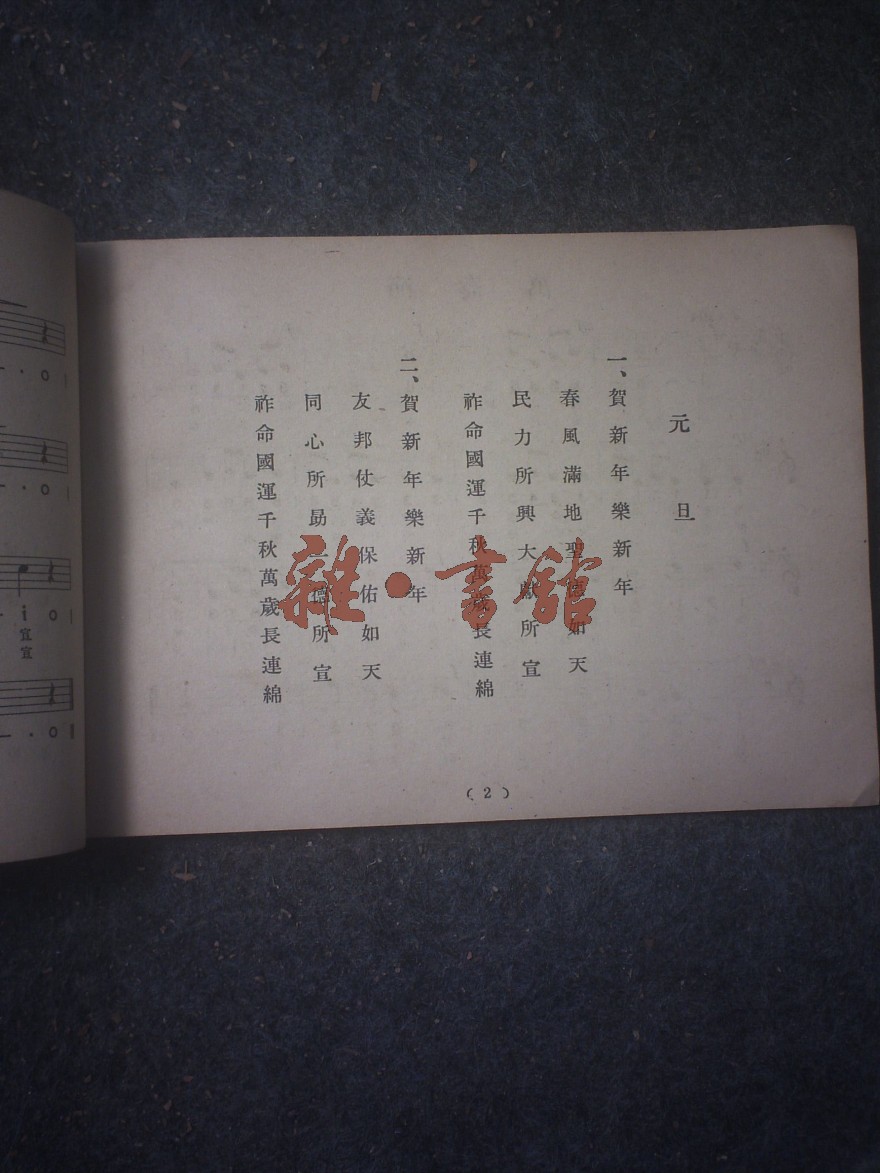 元旦
一、賀新年樂新年
春風滿地聖德如天
民力所興大猷所宣
祚命國運千秋萬歲長連綿
二、賀新年樂新年
友邦仗義保佑如天
同心所勗一德所宣
祚命國運千秋萬歲長連綿
(2)
雜·書館
i
宣
宣